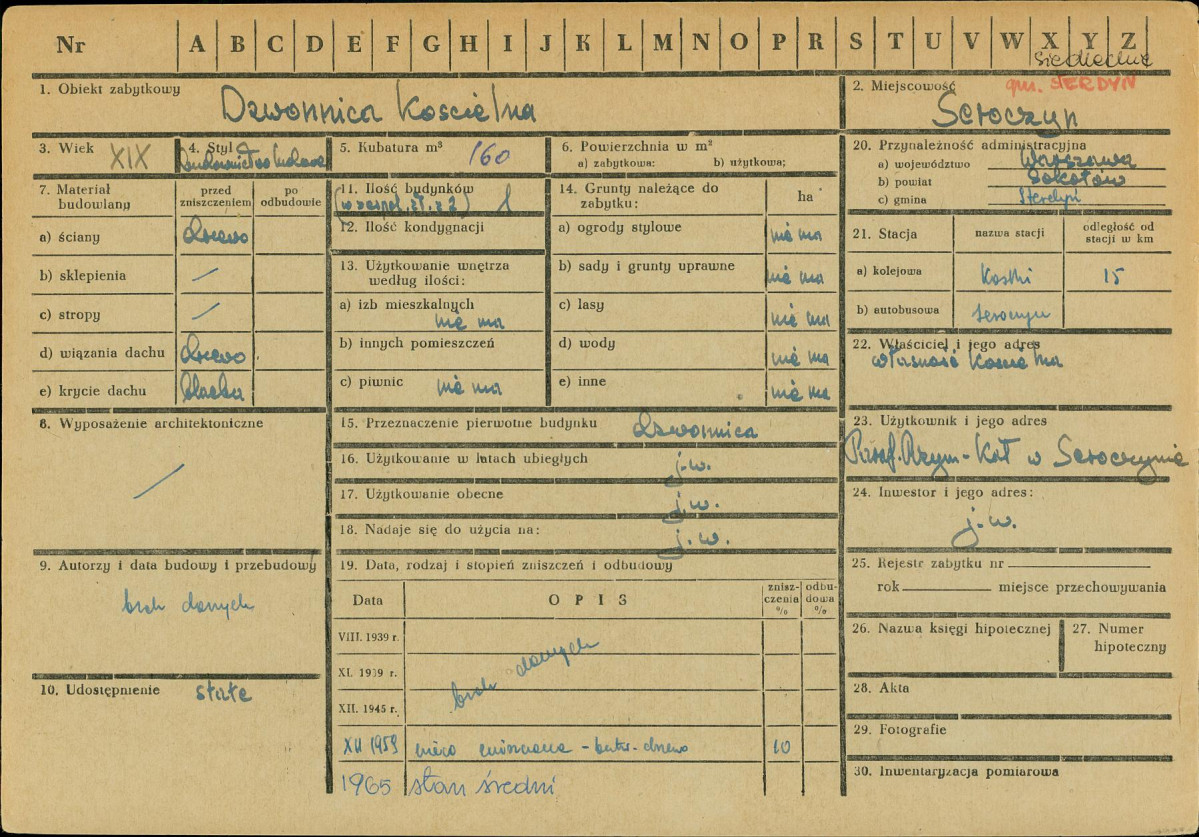 Nr A B C D E F G H I J K L M N O P R S T U V W X Y Z
siedleckie
1. Obiekt zabytkowy
Dzwonnica Kościelna
2. Miejscowość
gm. STERDYŃ
Seroczyn
3. Wiek XIX
4. Styl
Budownictwo ludowe
5. Kubatura m³ 160
6. Powierzchnia w m²
a) zabytkowa: b) użytkowa;
20. Przynależność administracyjna
a) województwo Warszawa
b) powiat Sokołów
c) gmina Sterdyń
7. Materiał budowlany
przed zniszczeniem
po odbudowie
a) ściany drzewo
b) sklepienia /
c) stropy /
d) wiązania dachu drzewo
e) krycie dachu blacha
11. Ilość budynków
(w zespol. zł. z 2) 1
12. Ilość kondygnacji
13. Użytkowanie wnętrza
według ilości:
a) izb mieszkalnych
nie ma
b) innych pomieszczeń
c) piwnic nie ma
14. Grunty należące do
zabytku:
ha
a) ogrody stylowe nie ma
b) sady i grunty uprawne nie ma
c) lasy nie ma
d) wody nie ma
e) inne nie ma
21. Stacja
nazwa stacji
odległość od
stacji w km
a) kolejowa Kostki 15
b) autobusowa Seroczyn
22. Właściciel i jego adres
własność Kościelna
8. Wyposażenie architektoniczne
/
15. Przeznaczenie pierwotne budynku dzwonnica
16. Użytkowanie w latach ubiegłych j.w.
17. Użytkowanie obecne j.w.
18. Nadaje się do użycia na: j.w.
23. Użytkownik i jego adres
Paraf. Rzym-Kat w Seroczynie
24. Inwestor i jego adres:
j.w.
9. Autorzy i data budowy i przebudowy
brak danych
10. Udostępnienie stałe
19. Data, rodzaj i stopień zniszczeń i odbudowy
Data
O P I S
znisz-
czenia
%
odbu-
dowa
%
VIII. 1939 r.
XI. 1939 r.
brak danych
XII. 1945 r.
XII 1959 10
1965 stan średni
25. Rejestr zabytku nr
rok miejsce przechowywania
26. Nazwa księgi hipotecznej
27. Numer
hipoteczny
28. Akta
29. Fotografie
30. Inwentaryzacja pomiarowa